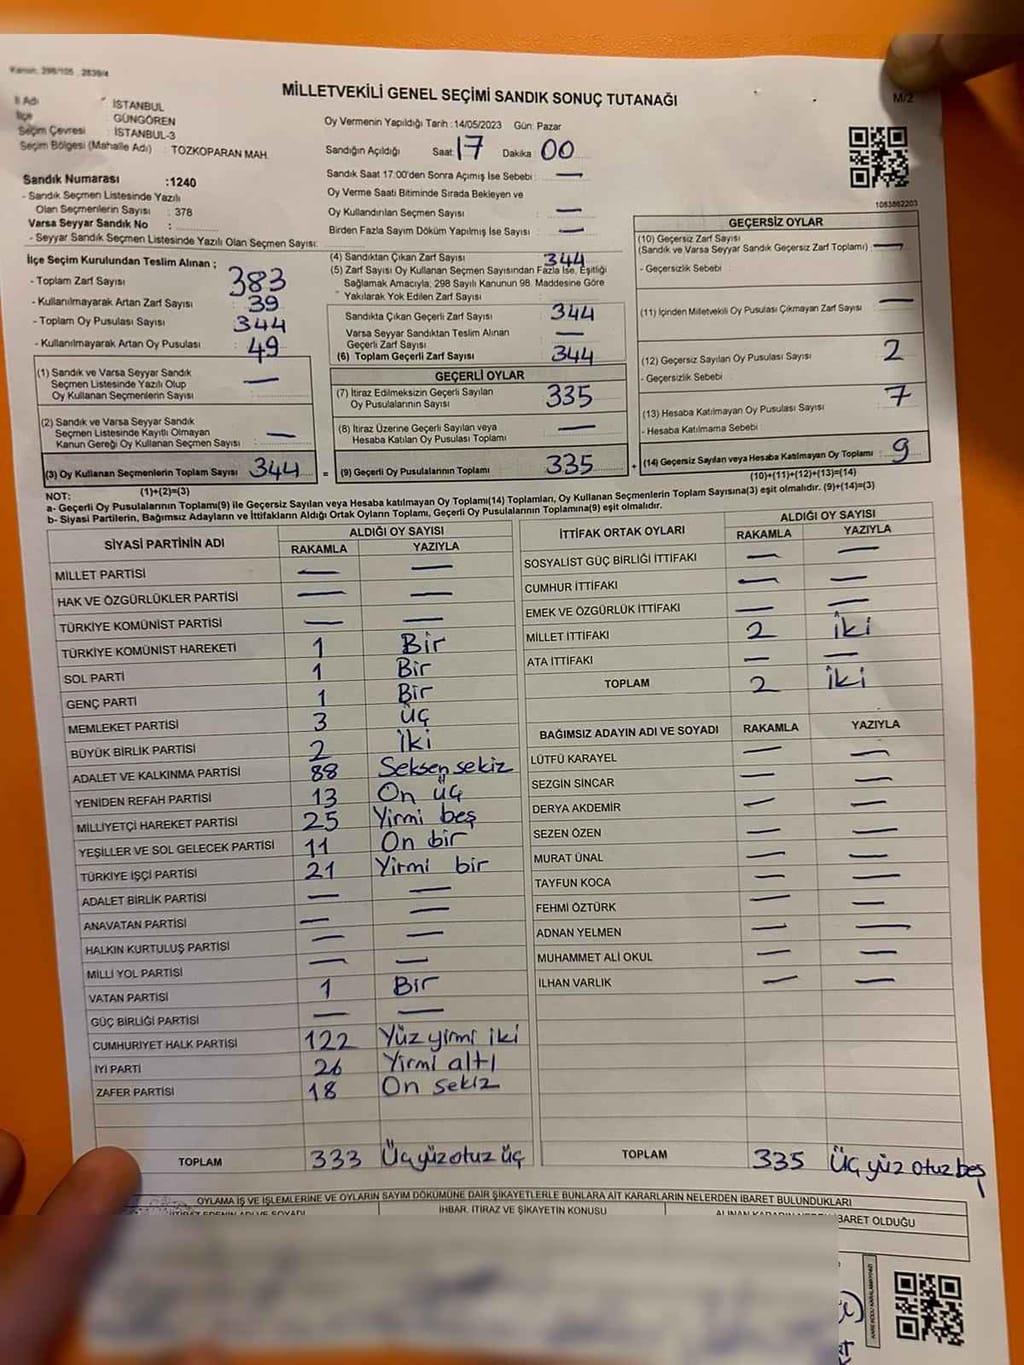 Kanun: 298/105 . 2839/4
MİLLETVEKİLİ GENEL SEÇİMİ SANDIK SONUÇ TUTANAĞI
M/2
İl Adı : İSTANBUL
İlçe : GÜNGÖREN
Seçim Çevresi : İSTANBUL-3
Seçim Bölgesi (Mahalle Adı) : TOZKOPARAN MAH.
Sandık Numarası :1240
- Sandık Seçmen Listesinde Yazılı
Olan Seçmenlerin Sayısı : 378
Varsa Seyyar Sandık No :
- Seyyar Sandık Seçmen Listesinde Yazılı Olan Seçmen Sayısı:
Oy Vermenin Yapıldığı Tarih :14/05/2023 Gün: Pazar
Sandığın Açıldığı Saat: 17 Dakika 00
Sandık Saat 17:00'den Sonra Açımış İse Sebebi : —
Oy Verme Saati Bitiminde Sırada Bekleyen ve
Oy Kullandırılan Seçmen Sayısı : —
Birden Fazla Sayım Döküm Yapılmış İse Sayısı : —
1083862203
İlçe Seçim Kurulundan Teslim Alınan ;
- Toplam Zarf Sayısı : 383
- Kullanılmayarak Artan Zarf Sayısı : 39
- Toplam Oy Pusulası Sayısı : 344
- Kullanılmayarak Artan Oy Pusulası : 49
(1) Sandık ve Varsa Seyyar Sandık
Seçmen Listesinde Yazılı Olup
Oy Kullanan Seçmenlerin Sayısı : —
(2) Sandık ve Varsa Seyyar Sandık
Seçmen Listesinde Kayıtlı Olmayan
Kanun Gereği Oy Kullanan Seçmen Sayısı : —
(3) Oy Kullanan Seçmenlerin Toplam Sayısı : 344
(1)+(2)=(3)
(4) Sandıktan Çıkan Zarf Sayısı : 344
(5) Zarf Sayısı Oy Kullanan Seçmen Sayısından Fazla İse, Eşitliği
Sağlamak Amacıyla; 298 Sayılı Kanunun 98. Maddesine Göre
Yakılarak Yok Edilen Zarf Sayısı :
Sandıkta Çıkan Geçerli Zarf Sayısı : 344
Varsa Seyyar Sandıktan Teslim Alınan
Geçerli Zarf Sayısı : —
(6) Toplam Geçerli Zarf Sayısı : 344
GEÇERLİ OYLAR
(7) İtiraz Edilmeksizin Geçerli Sayılan
Oy Pusulalarının Sayısı : 335
(8) İtiraz Üzerine Geçerli Sayılan veya
Hesaba Katılan Oy Pusulası Toplamı : —
= (9) Geçerli Oy Pusulalarının Toplamı : 335
GEÇERSİZ OYLAR
(10) Geçersiz Zarf Sayısı
(Sandık ve Varsa Seyyar Sandık Geçersiz Zarf Toplamı) : —
- Geçersizlik Sebebi :
(11) İçinden Milletvekili Oy Pusulası Çıkmayan Zarf Sayısı : —
(12) Geçersiz Sayılan Oy Pusulası Sayısı : 2
- Geçersizlik Sebebi :
(13) Hesaba Katılmayan Oy Pusulası Sayısı : 7
- Hesaba Katılmama Sebebi :
+ (14) Geçersiz Sayılan veya Hesaba Katılmayan Oy Toplamı : 9
(10)+(11)+(12)+(13)=(14)
NOT:
a- Geçerli Oy Pusulalarının Toplamı(9) ile Geçersiz Sayılan veya Hesaba katılmayan Oy Toplamı(14) Toplamları, Oy Kullanan Seçmenlerin Toplam Sayısına(3) eşit olmalıdır. (9)+(14)=(3)
b- Siyasi Partilerin, Bağımsız Adayların ve İttifakların Aldığı Ortak Oyların Toplamı, Geçerli Oy Pusulalarının Toplamına(9) eşit olmalıdır.
SİYASİ PARTİNİN ADI ALDIĞI OY SAYISI
RAKAMLA YAZIYLA
MİLLET PARTİSİ — —
HAK VE ÖZGÜRLÜKLER PARTİSİ — —
TÜRKİYE KOMÜNİST PARTİSİ — —
TÜRKİYE KOMÜNİST HAREKETİ 1 Bir
SOL PARTİ 1 Bir
GENÇ PARTİ 1 Bir
MEMLEKET PARTİSİ 3 üç
BÜYÜK BİRLİK PARTİSİ 2 İki
ADALET VE KALKINMA PARTİSİ 88 Seksen sekiz
YENİDEN REFAH PARTİSİ 13 On üç
MİLLİYETÇİ HAREKET PARTİSİ 25 Yirmi beş
YEŞİLLER VE SOL GELECEK PARTİSİ 11 On bir
TÜRKİYE İŞÇİ PARTİSİ 21 Yirmi bir
ADALET BİRLİK PARTİSİ — —
ANAVATAN PARTİSİ — —
HALKIN KURTULUŞ PARTİSİ — —
MİLLİ YOL PARTİSİ — —
VATAN PARTİSİ 1 Bir
GÜÇ BİRLİĞİ PARTİSİ — —
CUMHURİYET HALK PARTİSİ 122 Yüz yirmi iki
İYİ PARTİ 26 Yirmi altı
ZAFER PARTİSİ 18 On sekiz
TOPLAM 333 Üçyüzotuz üç
İTTİFAK ORTAK OYLARI ALDIĞI OY SAYISI
RAKAMLA YAZIYLA
SOSYALİST GÜÇ BİRLİĞİ İTTİFAKI — —
CUMHUR İTTİFAKI — —
EMEK VE ÖZGÜRLÜK İTTİFAKI — —
MİLLET İTTİFAKI 2 İki
ATA İTTİFAKI — —
TOPLAM 2 İki
BAĞIMSIZ ADAYIN ADI VE SOYADI RAKAMLA YAZIYLA
LÜTFÜ KARAYEL — —
SEZGİN SİNCAR — —
DERYA AKDEMİR — —
SEZEN ÖZEN — —
MURAT ÜNAL — —
TAYFUN KOCA — —
FEHMİ ÖZTÜRK — —
ADNAN YELMEN — —
MUHAMMET ALİ OKUL — —
İLHAN VARLIK — —
TOPLAM 335 Üç yüz otuz beş
OYLAMA İŞ VE İŞLEMLERİNE VE OYLARIN SAYIM DÖKÜMÜNE DAİR ŞİKAYETLERLE BUNLARA AİT KARARLARIN NELERDEN İBARET BULUNDUKLARI
İHBAR, İTİRAZ VE ŞİKAYETİN KONUSU
İBARET OLDUĞU